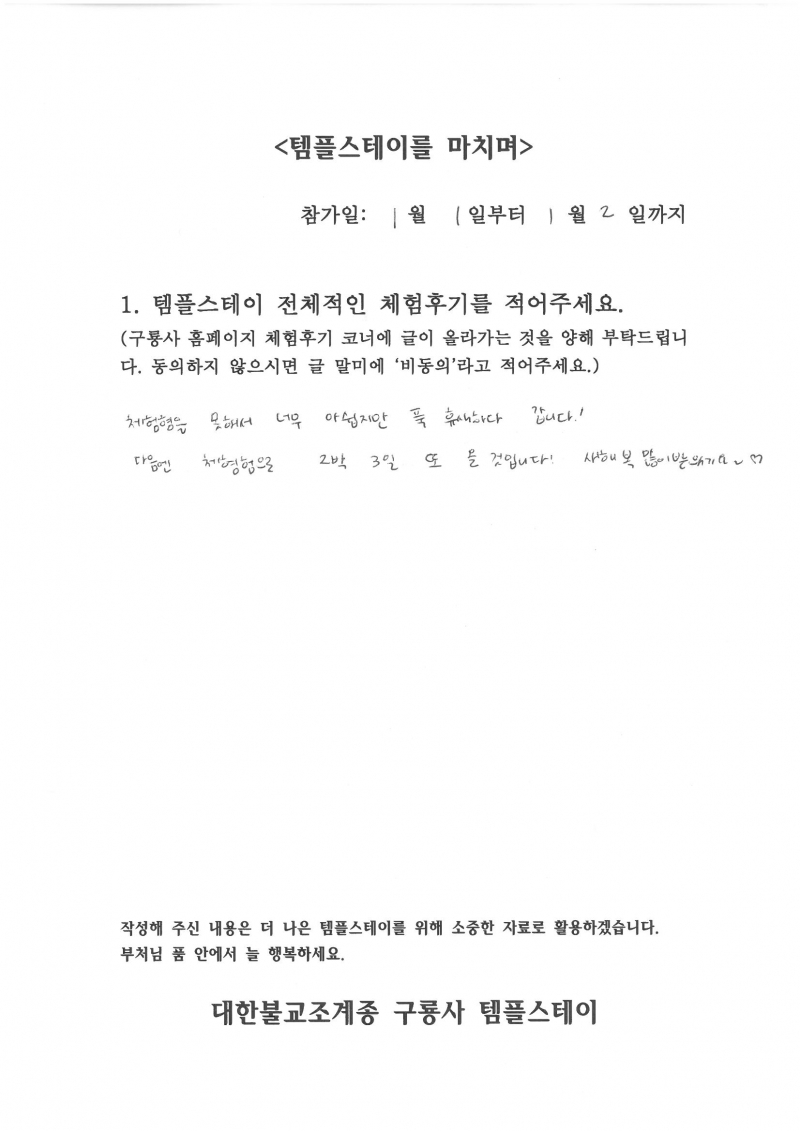 <템플스테이를 마치며>
참가일: 1월 1일부터 1월 2일까지
1. 템플스테이 전체적인 체험후기를 적어주세요.
(구룡사 홈페이지 체험후기 코너에 글이 올라가는 것을 양해 부탁드립니
다. 동의하지 않으시면 글 말미에 ‘비동의’라고 적어주세요.)
체험형을 못해서 너무 아쉽지만 푹 휴식하다 갑니다!
다음엔 체험형으로 2박 3일 또 올 것입니다! 새해 복 많이 받으세요~ ♡
작성해 주신 내용은 더 나은 템플스테이를 위해 소중한 자료로 활용하겠습니다.
부처님 품 안에서 늘 행복하세요.
대한불교조계종 구룡사 템플스테이